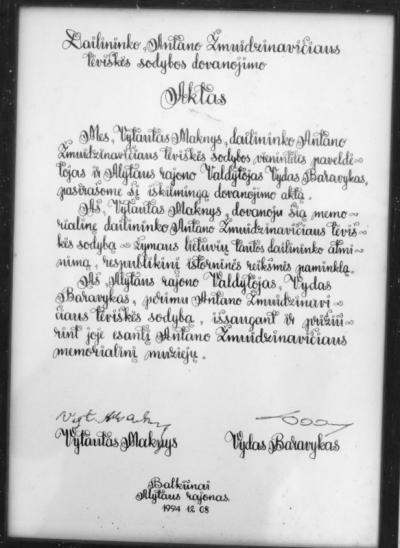 Dailininko Antano Žmuidzinavičiaus
tėviškės sodybos dovanojimo
Aktas
Mes, Vytautas Maknys, dailininko Antano
Žmuidzinavičiaus tėviškės sodybos vienintėlis paveldė-
tojas ir Alytaus rajono Valdytojas Vydas Baravykas,
pasirašome šį iškilmingą dovanojimo aktą.
Aš, Vytautas Maknys, dovanoju šią memo-
rialinę dailininko Antano Žmuidzinavičiaus teviš-
kės sodybą – žymaus lietuvių tautos dailininko atmi-
nimą, respublikinį istorinės reikšmės paminklą.
Aš Alytaus rajono Valdytojas, Vydas
Baravykas, perimu Antano Žmuidzinavi-
čiaus tėviškės sodybą, išsaugant ir prižiū-
rint joje esantį Antano Žmuidzinavičiaus
memorialinį muziejų.
Vytautas Maknys Vydas Baravykas
Balkūnai
Alytaus rajonas
1994 12 08